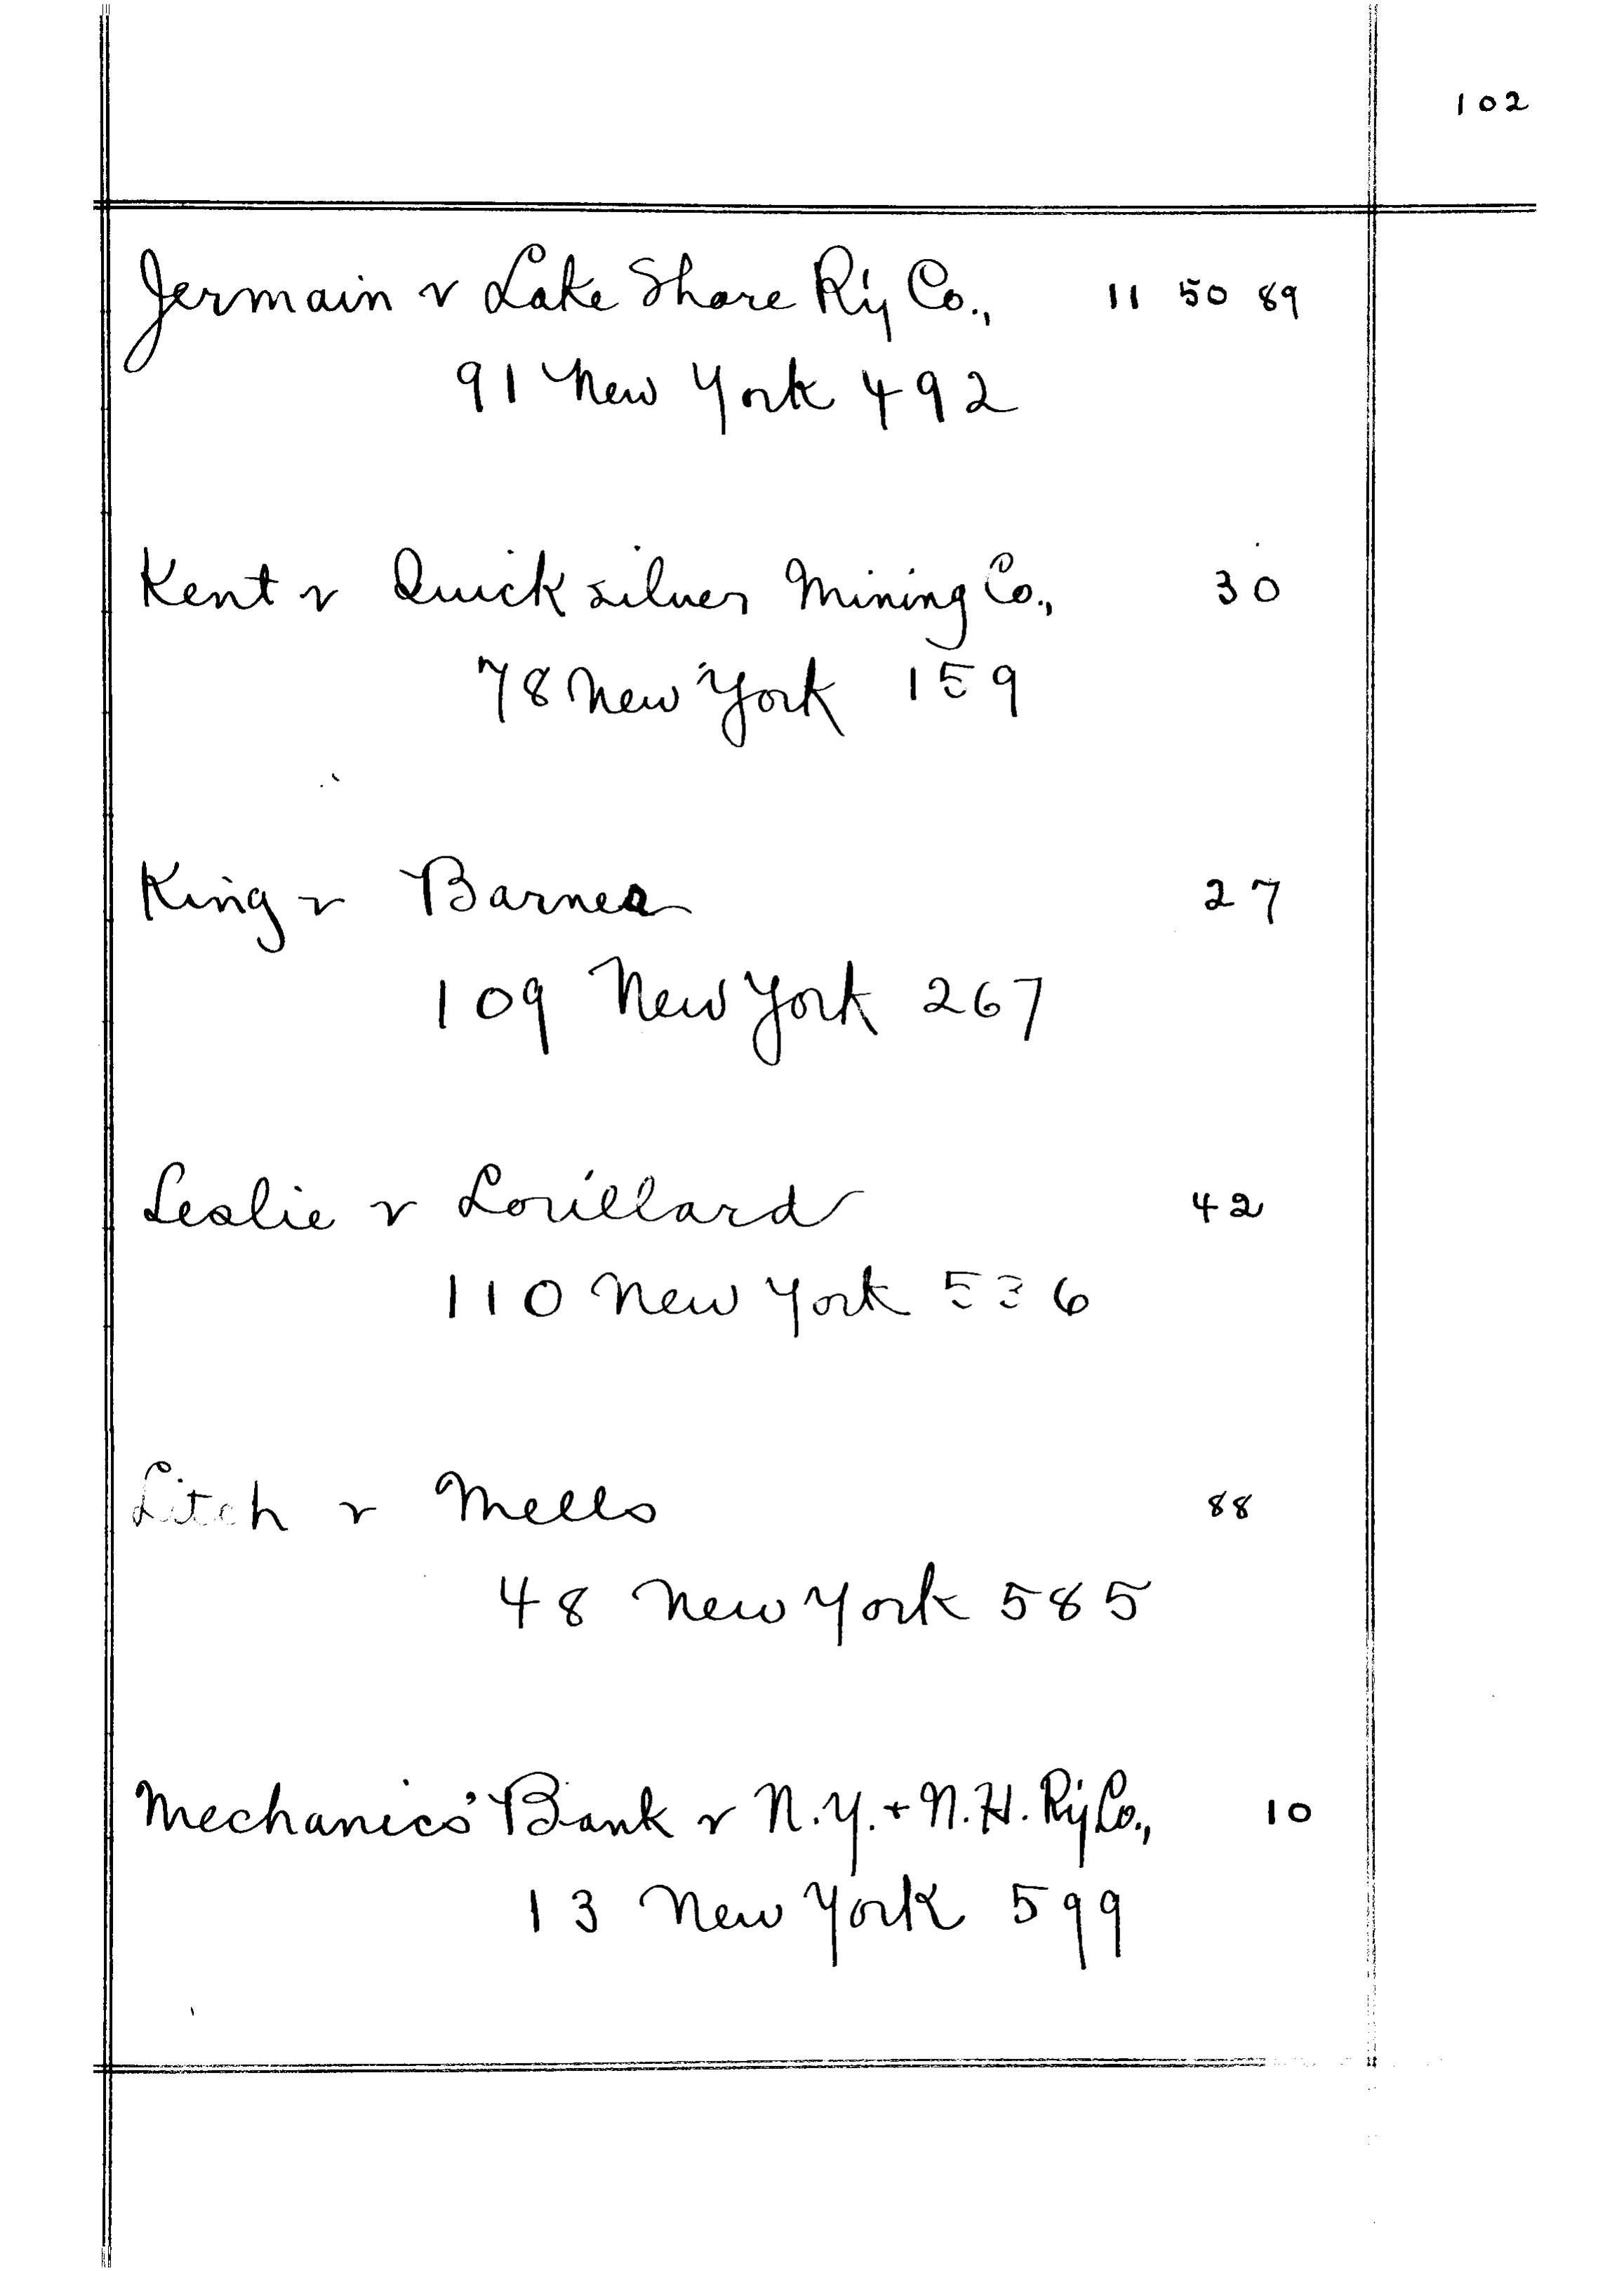 102
Jermain v Lake Shore R'y Co., 11 50 89
91 New York 492
Kent v Quicksilver Mining Co., 30
78 New York 159
King v Barnes 27
109 New York 267
Leslie v Lorillard 42
110 New York 536
Litch v Mells 88
48 New York 585
Mechanics' Bank v N.Y. + N.H. R'y Co., 10
13 New York 599